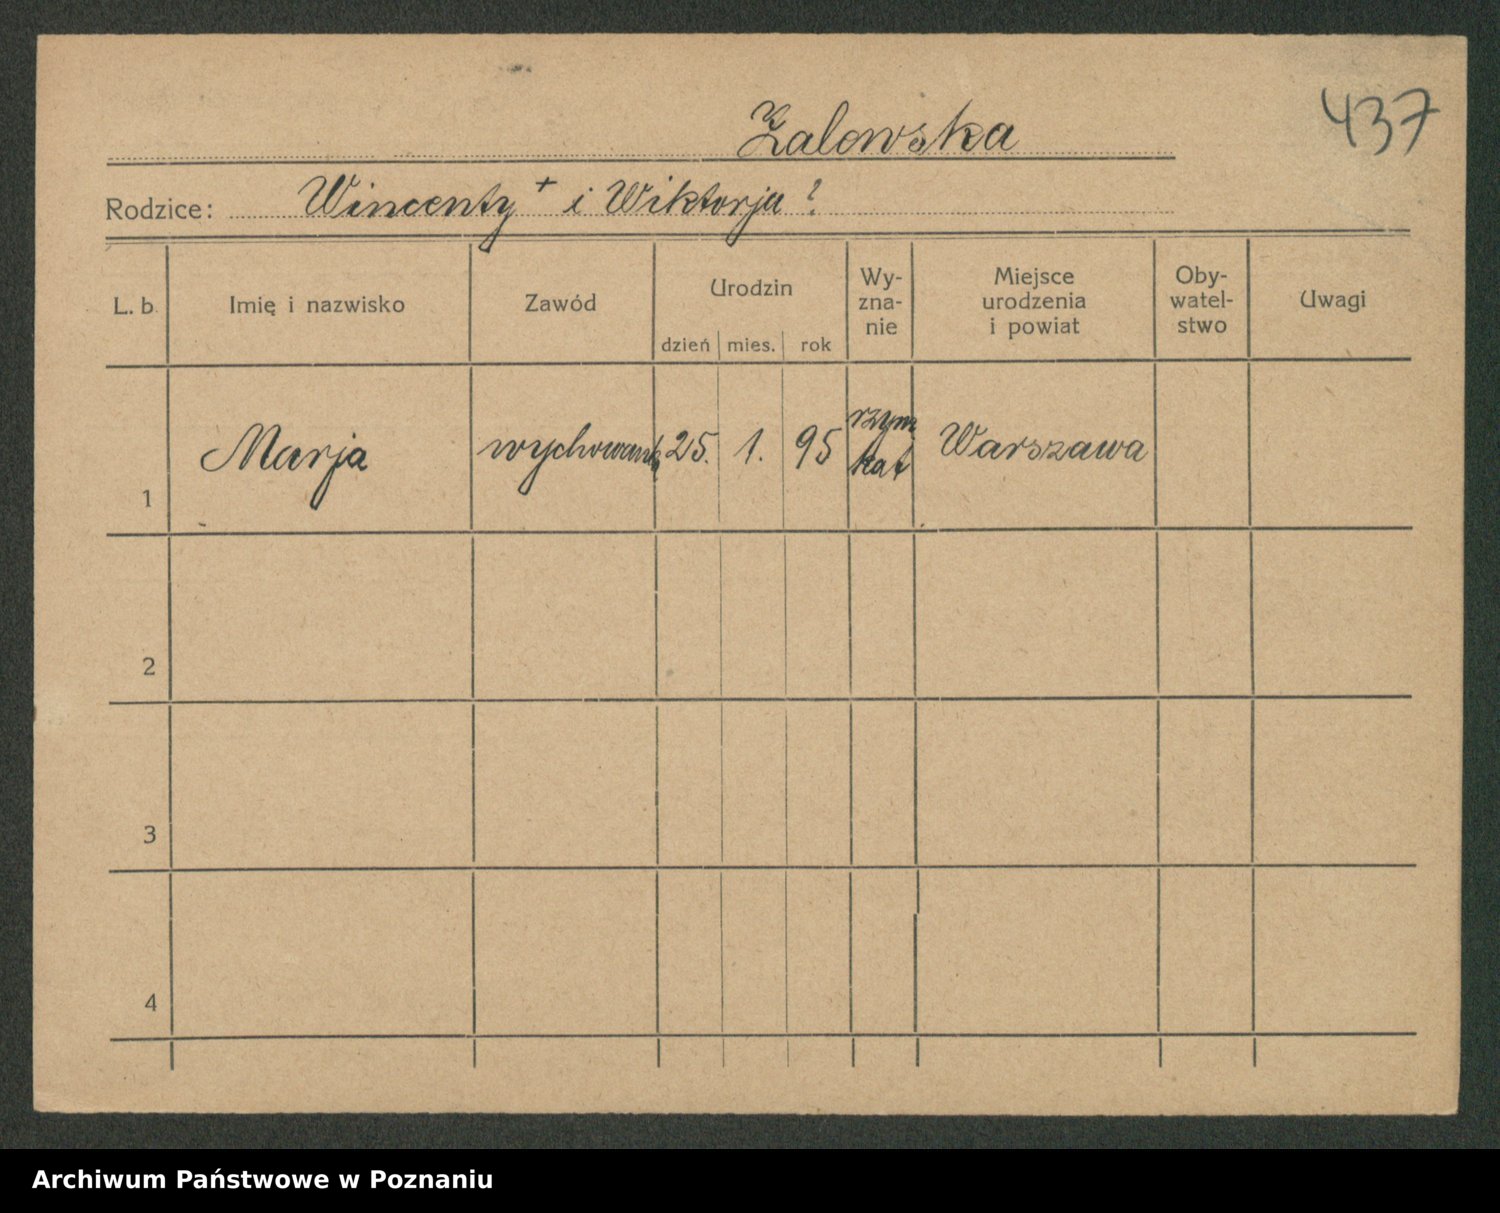 437
Zalewska
Rodzice: Wincenty + i Wiktorja ?
L. b. Imię i nazwisko Zawód Urodzin Wy- Miejsce Oby- Uwagi
zna- urodzenia watel-
dzień mies. rok nie i powiat stwo
1 Marja wychowank 25. 1. 95 rzym kat Warszawa
2
3
4
Archiwum Państwowe w Poznaniu